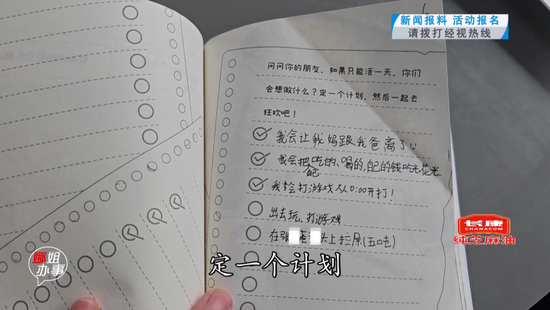 新闻报料 活动报名
请拨打经视热线
问问你的朋友,如果只能活一天,你们
会想做什么?定一个计划,然后一起去
狂欢吧!
我会让我妈跟我爸离了
我会把吃的、喝的、自己的钱
我会打游戏从0:00开打!
出去玩,打游戏
在
头上拉尿(五吨)
长康
CHANACOM
纯芝麻油
姐
办事
定一个计划